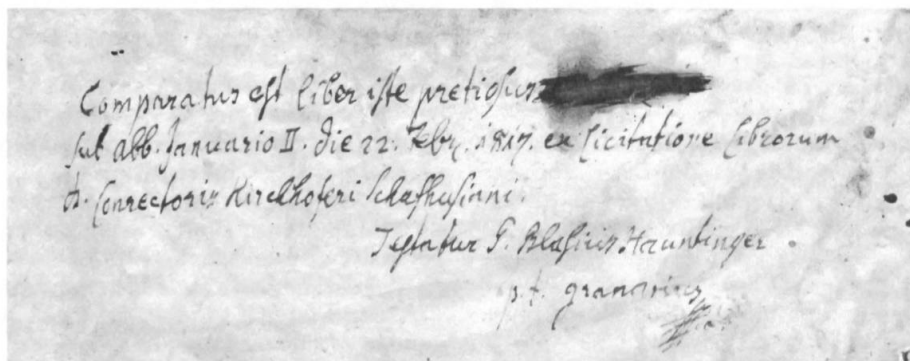 Comparatus est liber iste pretiosus
sub abb. Januario II. die 22. Febr. 1817. ex licitatione librorum
Conrectoris Kirchhoferi Schafhusiani.
Testatur P. Blasius Hauntinger
p. t. granarius